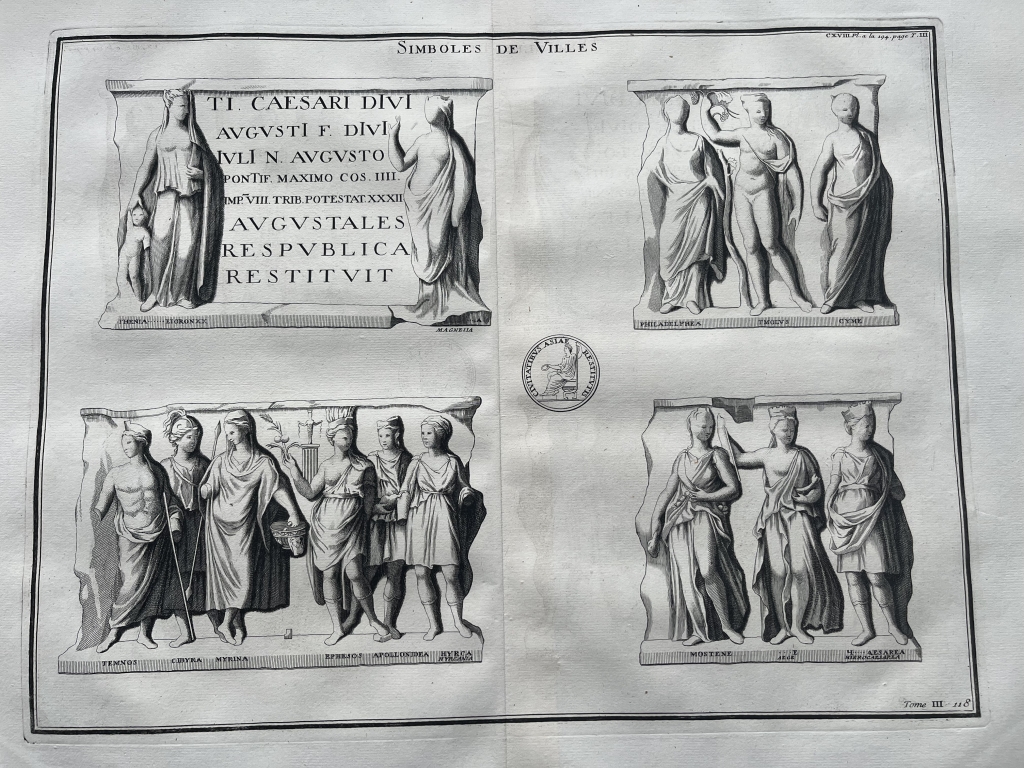 SIMBOLES DE VILLES
CXVIII Pl. a la 194. page T. III
TI. CAESARI DIVI
AVGVSTI F. DIVI
IVLI N. AVGVSTO
PONTIF. MAXIMO COS. IIII.
IMP. VIII. TRIB. POTESTAT. XXXII
AVGVSTALES
RESPVBLICA
RESTITVIT
MAGNESIA
PHILADELPHEA TMOLVS CYME
CIVITATIBVS ASIAE RESTITVTIS
TEMNOS CIBYRA MYRINA EPHESOS APOLLONIDEA HYRCA
HYRCANIA
MOSTENE AESAREA
AEGE HIEROCAESAREA
Tome III 118